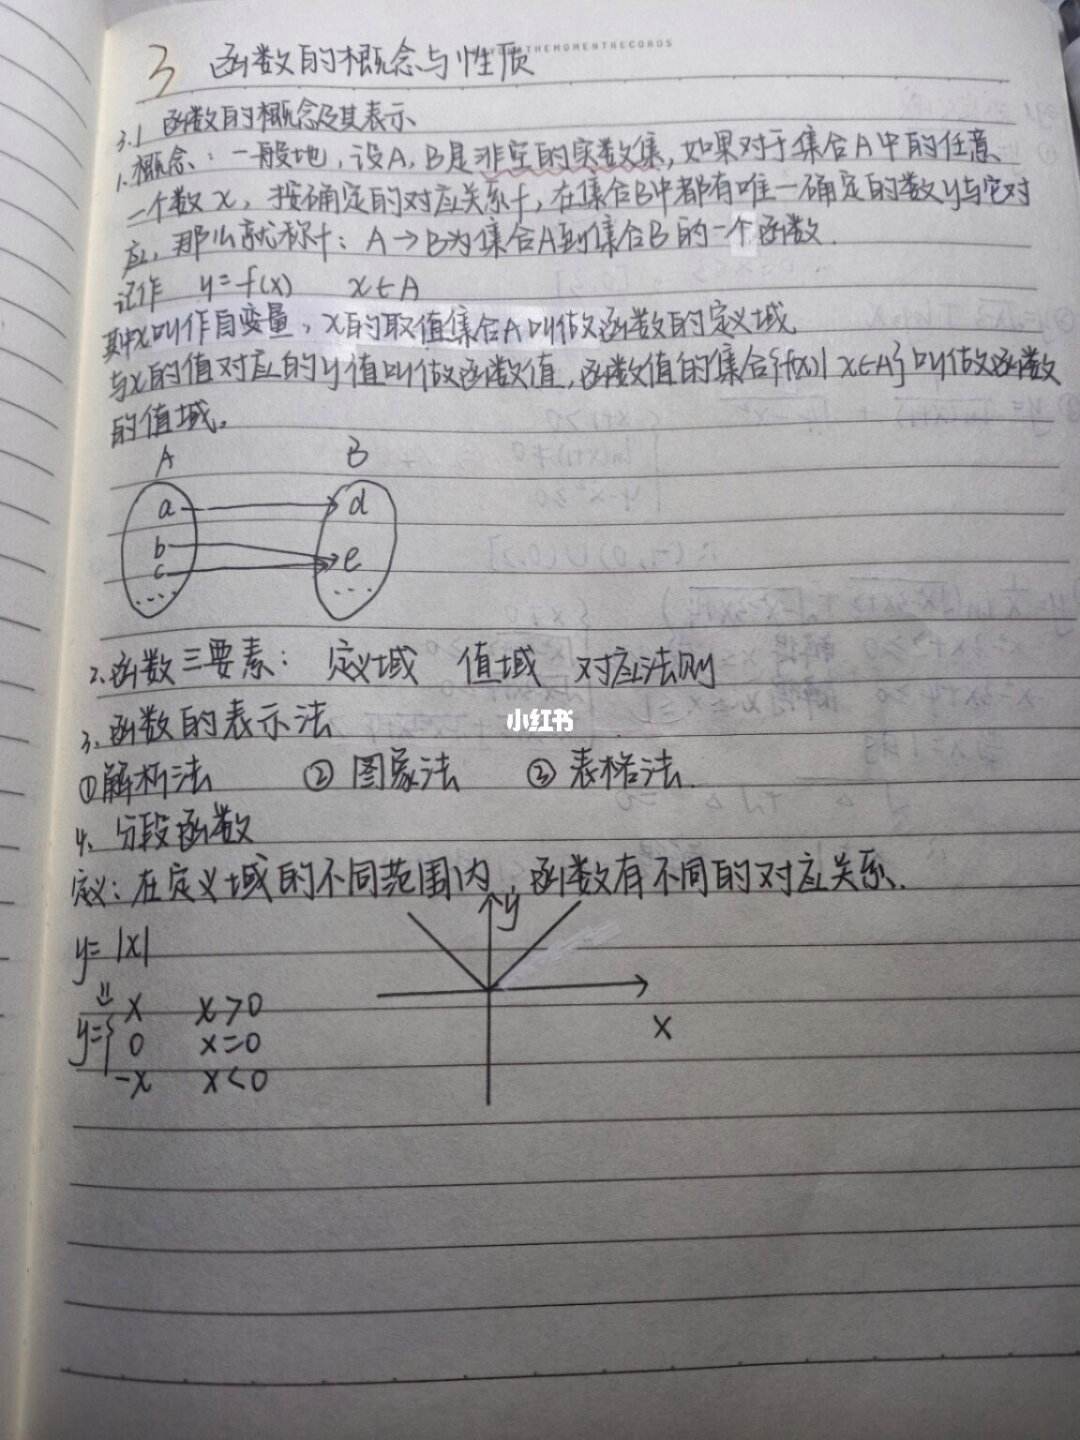 THEMOMENTRECORDS
3 函数的概念与性质
3.1 函数的概念及其表示
1.概念：一般地，设A，B是非空的实数集，如果对于集合A中的任意
一个数x，按确定的对应关系f，在集合B中都有唯一确定的数y与它对
应，那么就称f：A→B为集合A到集合B的一个函数．
记作 y=f(x) x∈A
其中x叫作自变量，x的取值集合A叫做函数的定义域
与x的值对应的y值叫做函数值，函数值的集合{f(x)| x∈A}叫做函数
的值域。
A B
a d
b e
c
... ...
2.函数三要素： 定义域 值域 对应法则
3.函数的表示法
小红书
①解析法 ② 图象法 ③ 表格法．
4、分段函数
定义：在定义域的不同范围内，函数有不同的对应关系．
y
y=|x|
x
y={ x x>0
0 x=0
-x x<0